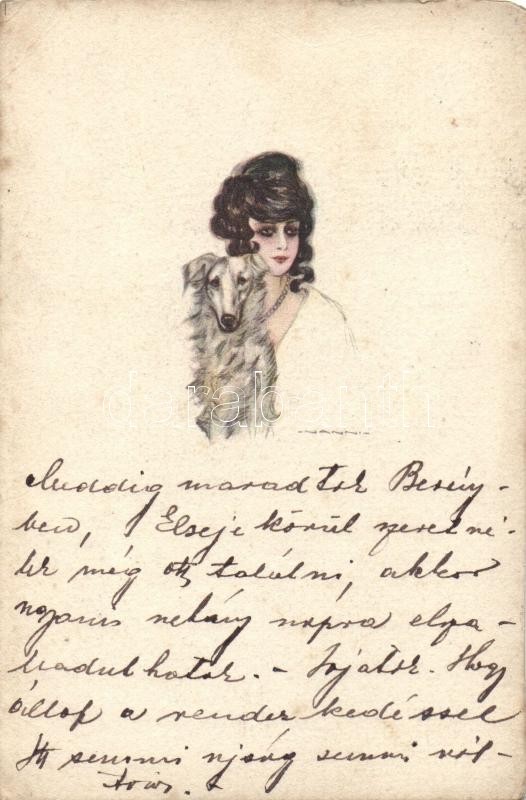 NANNI
darabanth
Meddig maradtok Berény-
ben, Elseje körül szeretné-
lek még ott találni, akkor
ugyanis néhány napra elsza-
badulhatok. - Írjatok. Hogy
állsz a rendezkedéssel
Itt semmi ujság semmi vál-
tozás.